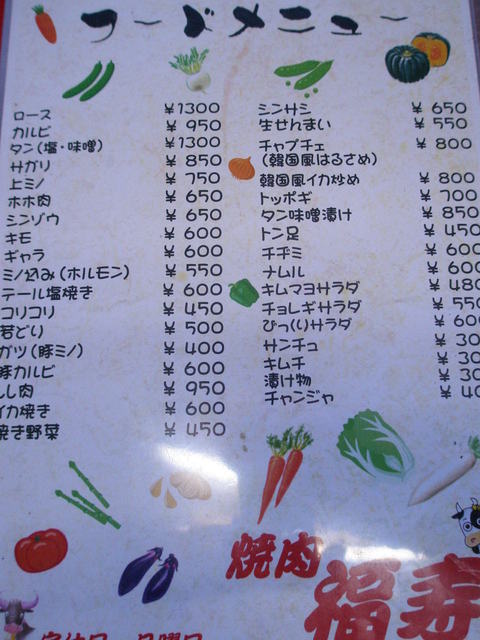 フードメニュー
ロース ¥1300
カルビ ¥ 950
タン(塩・味噌) ¥1300
サガリ ¥ 850
上ミノ ¥ 750
ホホ肉 ¥ 650
シンゾウ ¥ 650
キモ ¥ 600
ギャラ ¥ 600
ミノ込み(ホルモン) ¥ 550
テール塩焼き ¥ 600
コリコリ ¥ 450
若どり ¥ 500
ガツ(豚ミノ) ¥ 400
豚カルビ ¥ 600
しし肉 ¥ 950
イカ焼き ¥ 600
焼き野菜 ¥ 450
シンサシ ¥ 650
生せんまい ¥ 550
チャプチェ ¥ 800
(韓国風はるさめ)
韓国風イカ炒め ¥ 800
トッポギ ¥ 700
タン味噌漬け ¥ 850
トン足 ¥ 450
チヂミ ¥ 600
ナムル ¥ 600
キムマヨサラダ ¥ 480
チョレギサラダ ¥ 550
びっくりサラダ ¥ 600
サンチュ ¥ 30
キムチ ¥ 30
漬け物 ¥ 30
チャンジャ ¥ 40
焼肉 福寿
定休日 月曜日